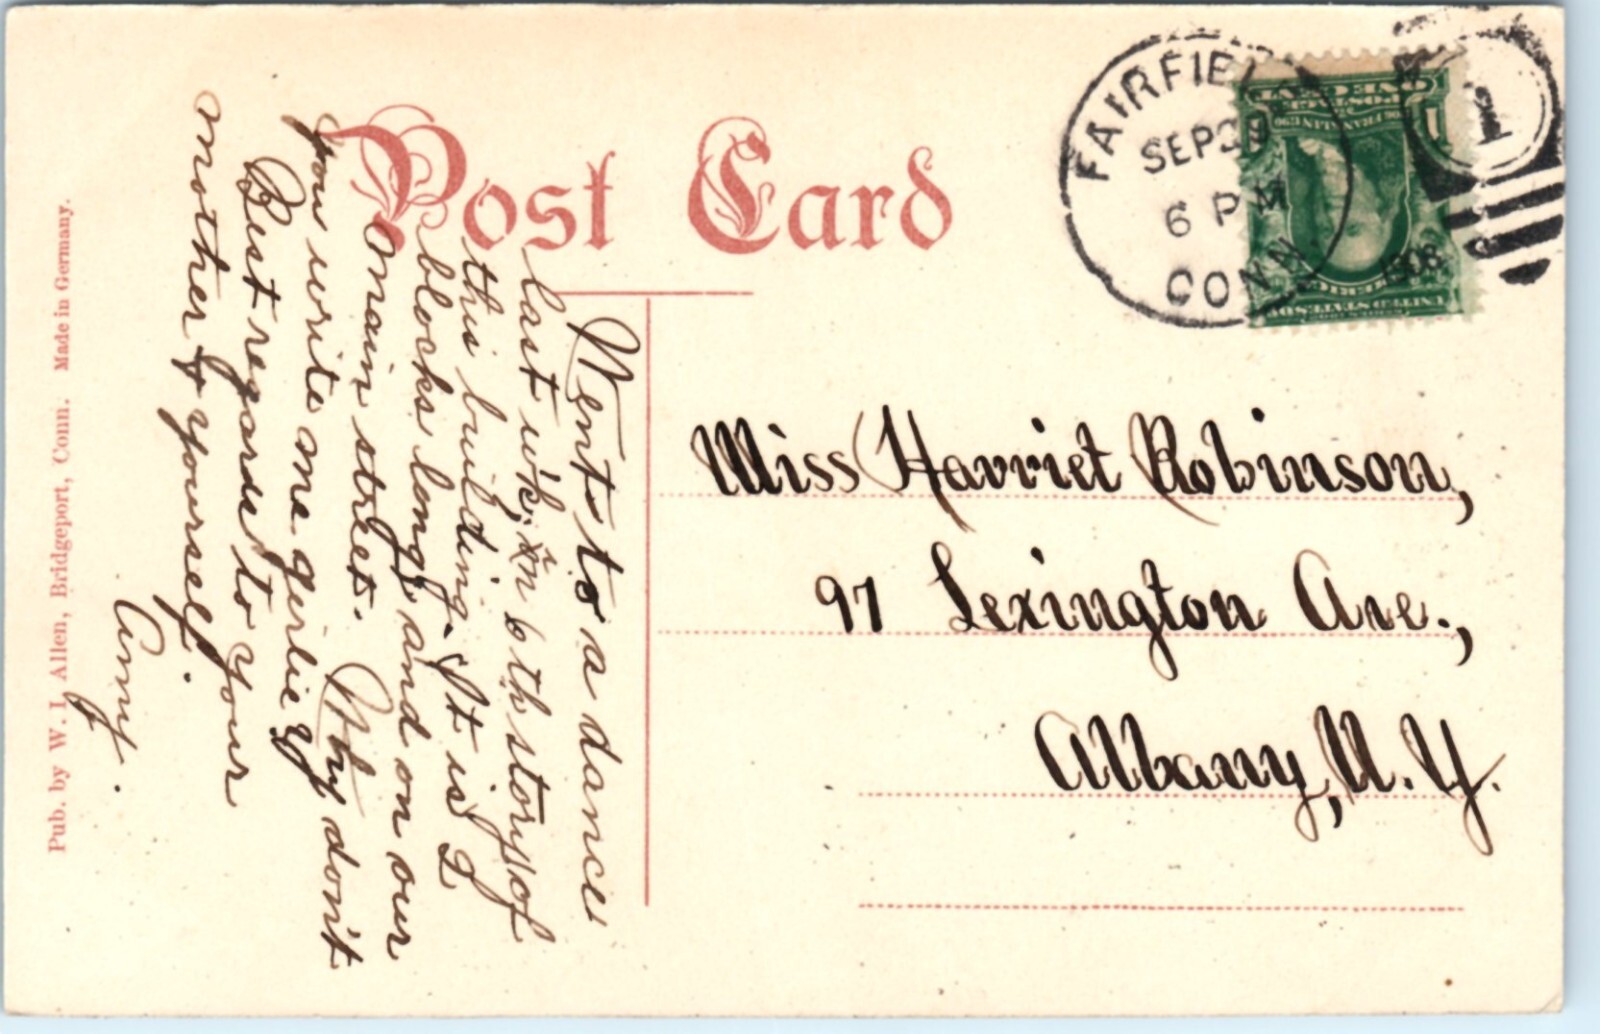 Post Card
FAIRFIELD
SEP 29
6 PM
1908
CONN.
1
ONE CENT
POSTAGE
FRANKLIN
UNITED STATES OF
AMERICA
Went to a dance
last w'k. in 6th story of
this building. It is 2
blocks long and on our
main street. Why don't
you write me girlie?
Best regards to your
mother & yourself.
Amy.
Miss Harriet Robinson,
97 Lexington Ave.,
Albany, N. Y.
Pub. by W. I. Allen, Bridgeport, Conn. Made in Germany.